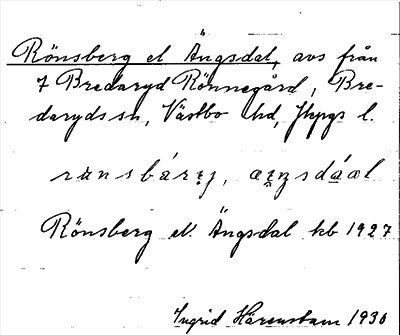 Rönsberg el Ängsdal, avs från
7 Bredaryd Rönnegård, Bre-
daryds sn, Västbo hd, Jkpgs l.
Rönsberg el. Ängsdal kb 1927
Ingrid Härenstam 1930